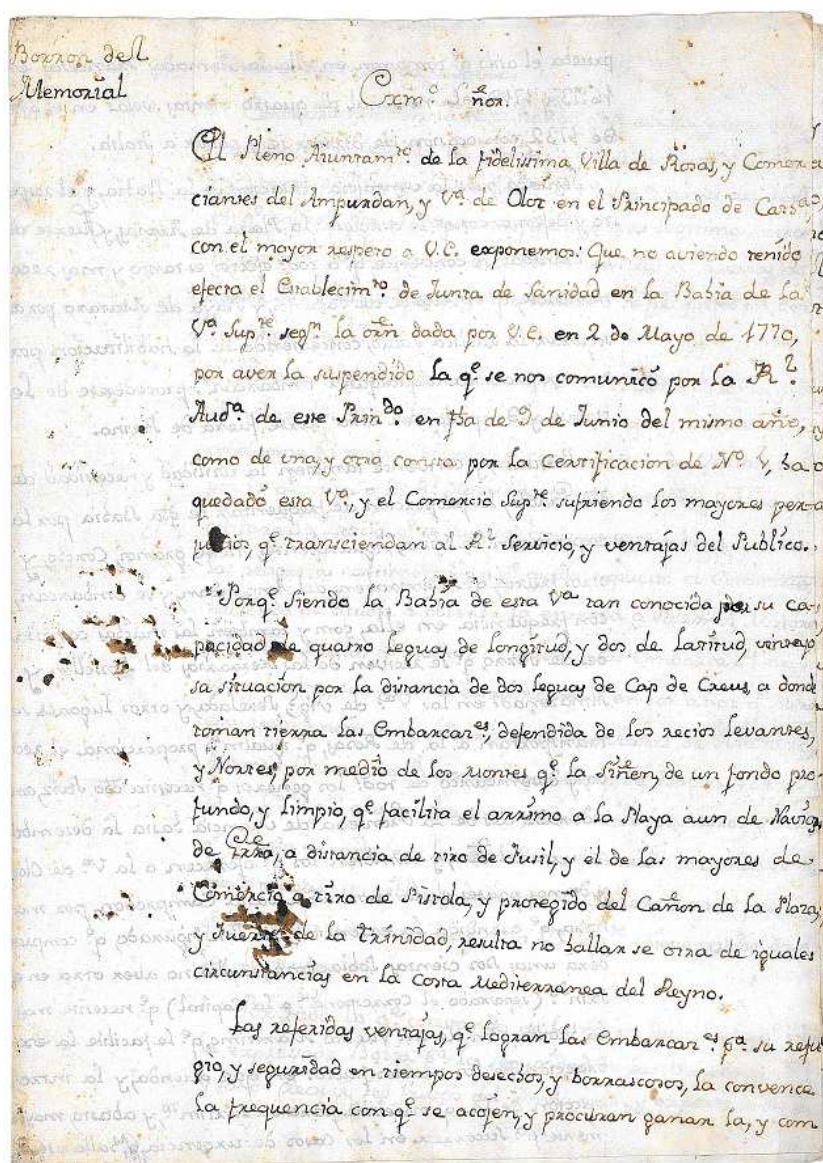 Borron del
Memorial
Exmº Señor.
El Pleno Aiuntamte. de la fidelissima Villa de Rosas, y Comer
ciantes del Ampurdan, y Vª de Olot en el Principado de Cathª,
con el mayor respeto a V.E. exponemos: Que no aviendo tenido
efecta el Establecimto. de Junta de Sanidad en la Bahia de la
Vª Supte segn la orñ dada por V.E. en 2 de Mayo de 1770,
por aver la suspendido la qe. se nos comunicó por la Rl.
Audª de este Prindo. en fha de 9 de Junio del mismo año,
como de una, y otra consta por la Certificacion de Nº 1, ha
quedado esta Vª, y el Comercio Supte sufriendo los mayores per
juicios, qe. transciendan al Rl. Servicio, y ventajas del Publico.
Porqe. siendo la Bahia de esta Vª tan conocida por su ca
pacidad de quatro leguas de longitud, y dos de latitud, ventajo
sa situacion por la distancia de dos leguas de Cap de Creus, a donde
toman tierra las Embarcaes, defendida de los recios levantes,
y Nortes, por medio de los montes qe. la Siñen, de un fondo pro
fundo, y limpio, qe. facilita el arrimo a la Playa aun de Navios
de Grrã, a distancia de tiro de Fusil, y el de las mayores de
Comercio a tiro de Pistola, y protegido del Cañon de la Plaza,
y Fuerte de la Trinidad, resulta no hallar se otra de iguales
circunstancias en la Costa Mediterranea del Reyno.
Las referidas ventajas, qe. logran las Embarcanes. pª su refu
gio, y seguridad en tiempos desechos, y borrascosos, la convence
la frequencia con qe. se acojen, y procuran ganar la, y com